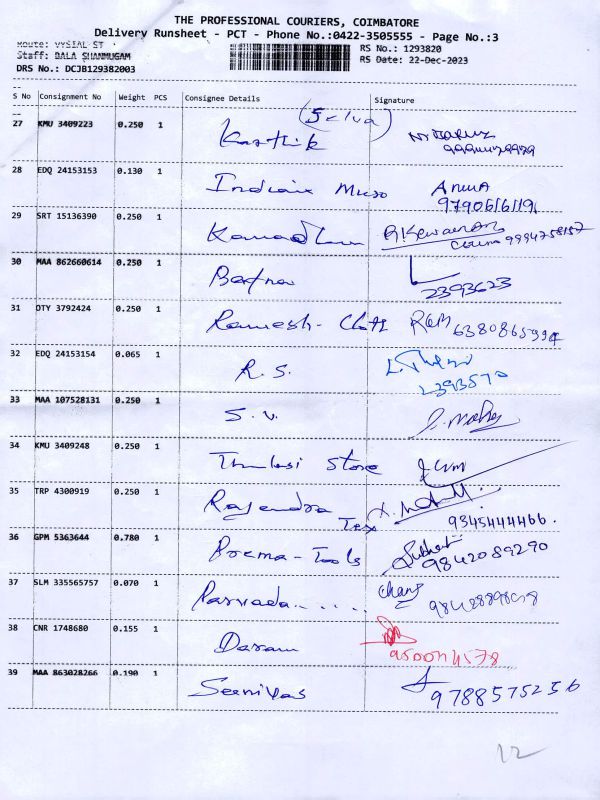 THE PROFESSIONAL COURIERS, COIMBATORE
Delivery Runsheet - PCT - Phone No.:0422-3505555 - Page No.:3
Route: VYSIAL ST RS No.: 1293820
Staff: BALA SHANMUGAM RS Date: 22-Dec-2023
DRS No.: DCJB129382003
S No Consignment No Weight PCS Consignee Details Signature
27 KMU 3409223 0.250 1 Karthik (Selva)
28 EDQ 24153153 0.130 1 Indian
9790616119
29 SRT 15136390 0.250 1
9994758157
30 MAA 862660614 0.250 1
2393623
31 OTY 3792424 0.250 1 Ramesh- RAM 6380865994
32 EDQ 24153154 0.065 1 R. S.
2393570
33 MAA 107528131 0.250 1 S. V.
34 KMU 3409248 0.250 1 Thulasi Store
35 TRP 4300919 0.250 1 Rajendra
Tex 9345444466.
36 GPM 5363644 0.780 1 Prema-Tools
9842089290
37 SLM 335565757 0.070 1
38 CNR 1748680 0.155 1
39 MAA 863028266 0.190 1 Seenivas
9788575256
12